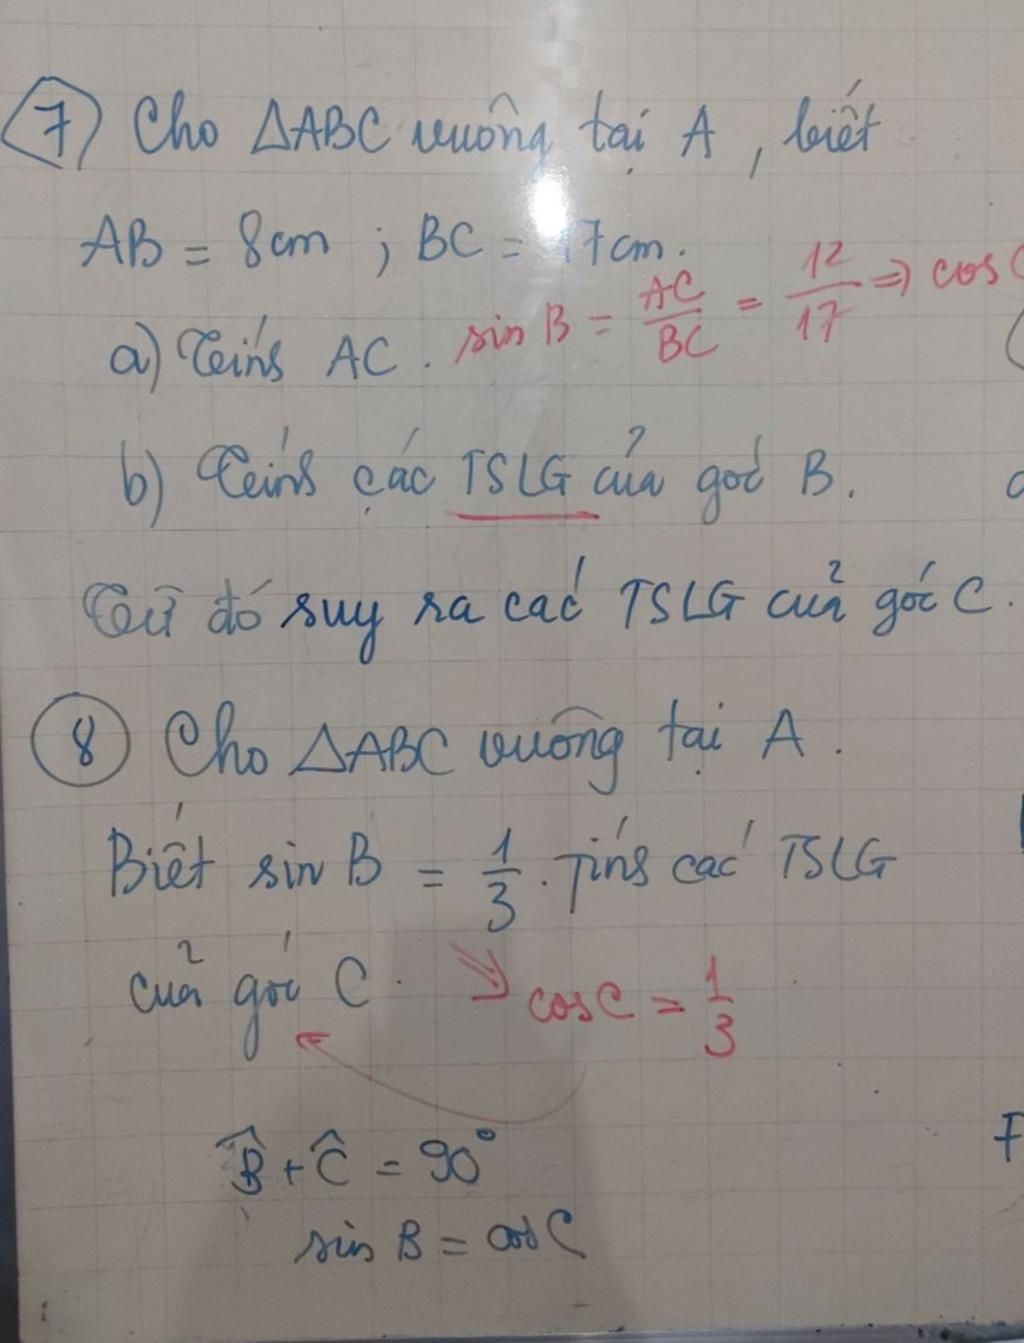 7) Cho ΔABC vuông tại A, biết
AB = 8cm ; BC = 17cm.
a) Tính AC. sin B = AC/BC = 12/17 ⇒ cos C
b) Tính các TSLG của góc B.
Từ đó suy ra các TSLG của góc C.
8 Cho ΔABC vuông tại A.
Biết sin B = 1/3. Tính các TSLG
của góc C. ⇒ cos C = 1/3
B̂ + Ĉ = 90°
sin B = cos C